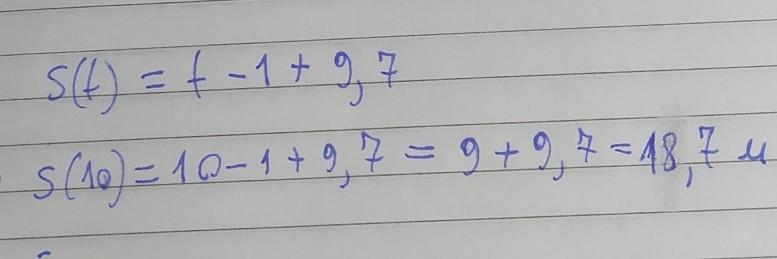 S(t) = t - 1 + 9,7
S(10) = 10 - 1 + 9,7 = 9 + 9,7 = 18,7 м